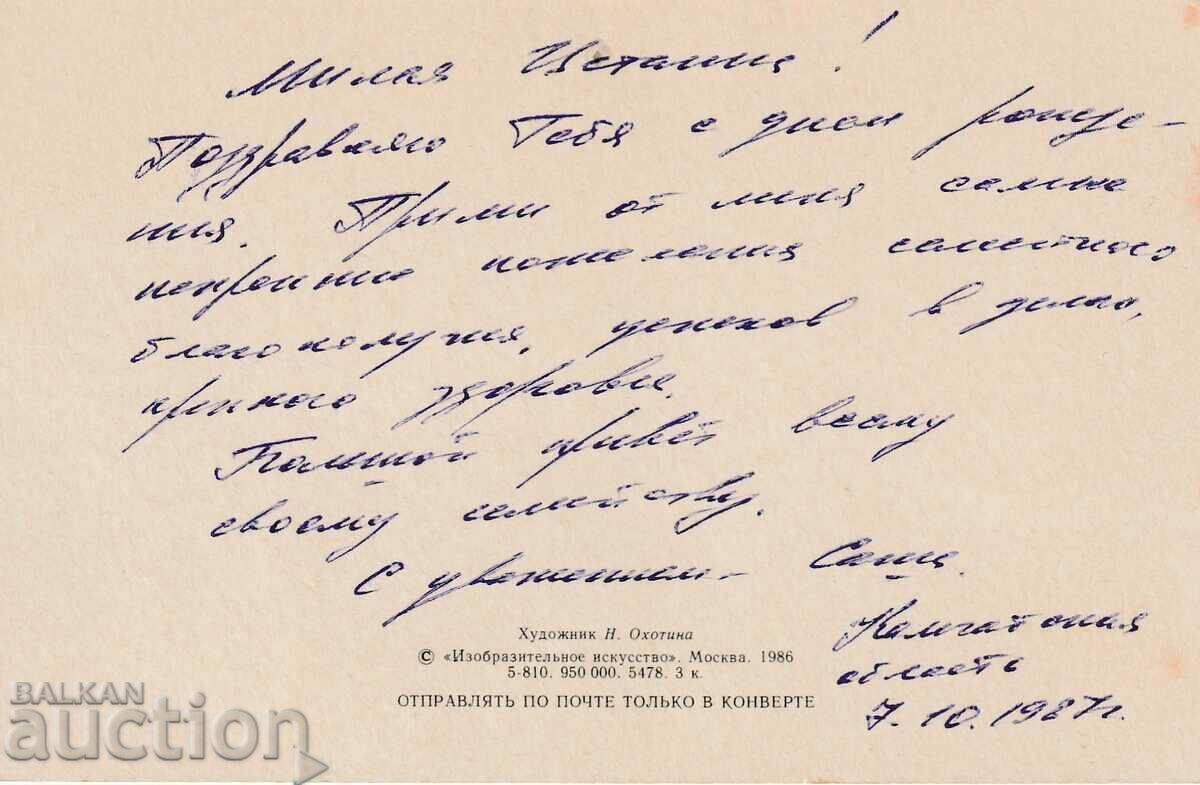 Милая Цветанка!
Поздравляю Тебя с днем рожде-
ния. Прими от меня самые
искренние пожелания семейного
благополучия, успехов в делах,
крепкого здоровья.
Большой привет всему
своему семейству.
С уважением – Саша.
Камчатская
область
7.10.1987г.
Художник Н. Охотина
© «Изобразительное искусство». Москва. 1986
5-810. 950 000. 5478. 3 к.
ОТПРАВЛЯТЬ ПО ПОЧТЕ ТОЛЬКО В КОНВЕРТЕ
BALKAN
auction